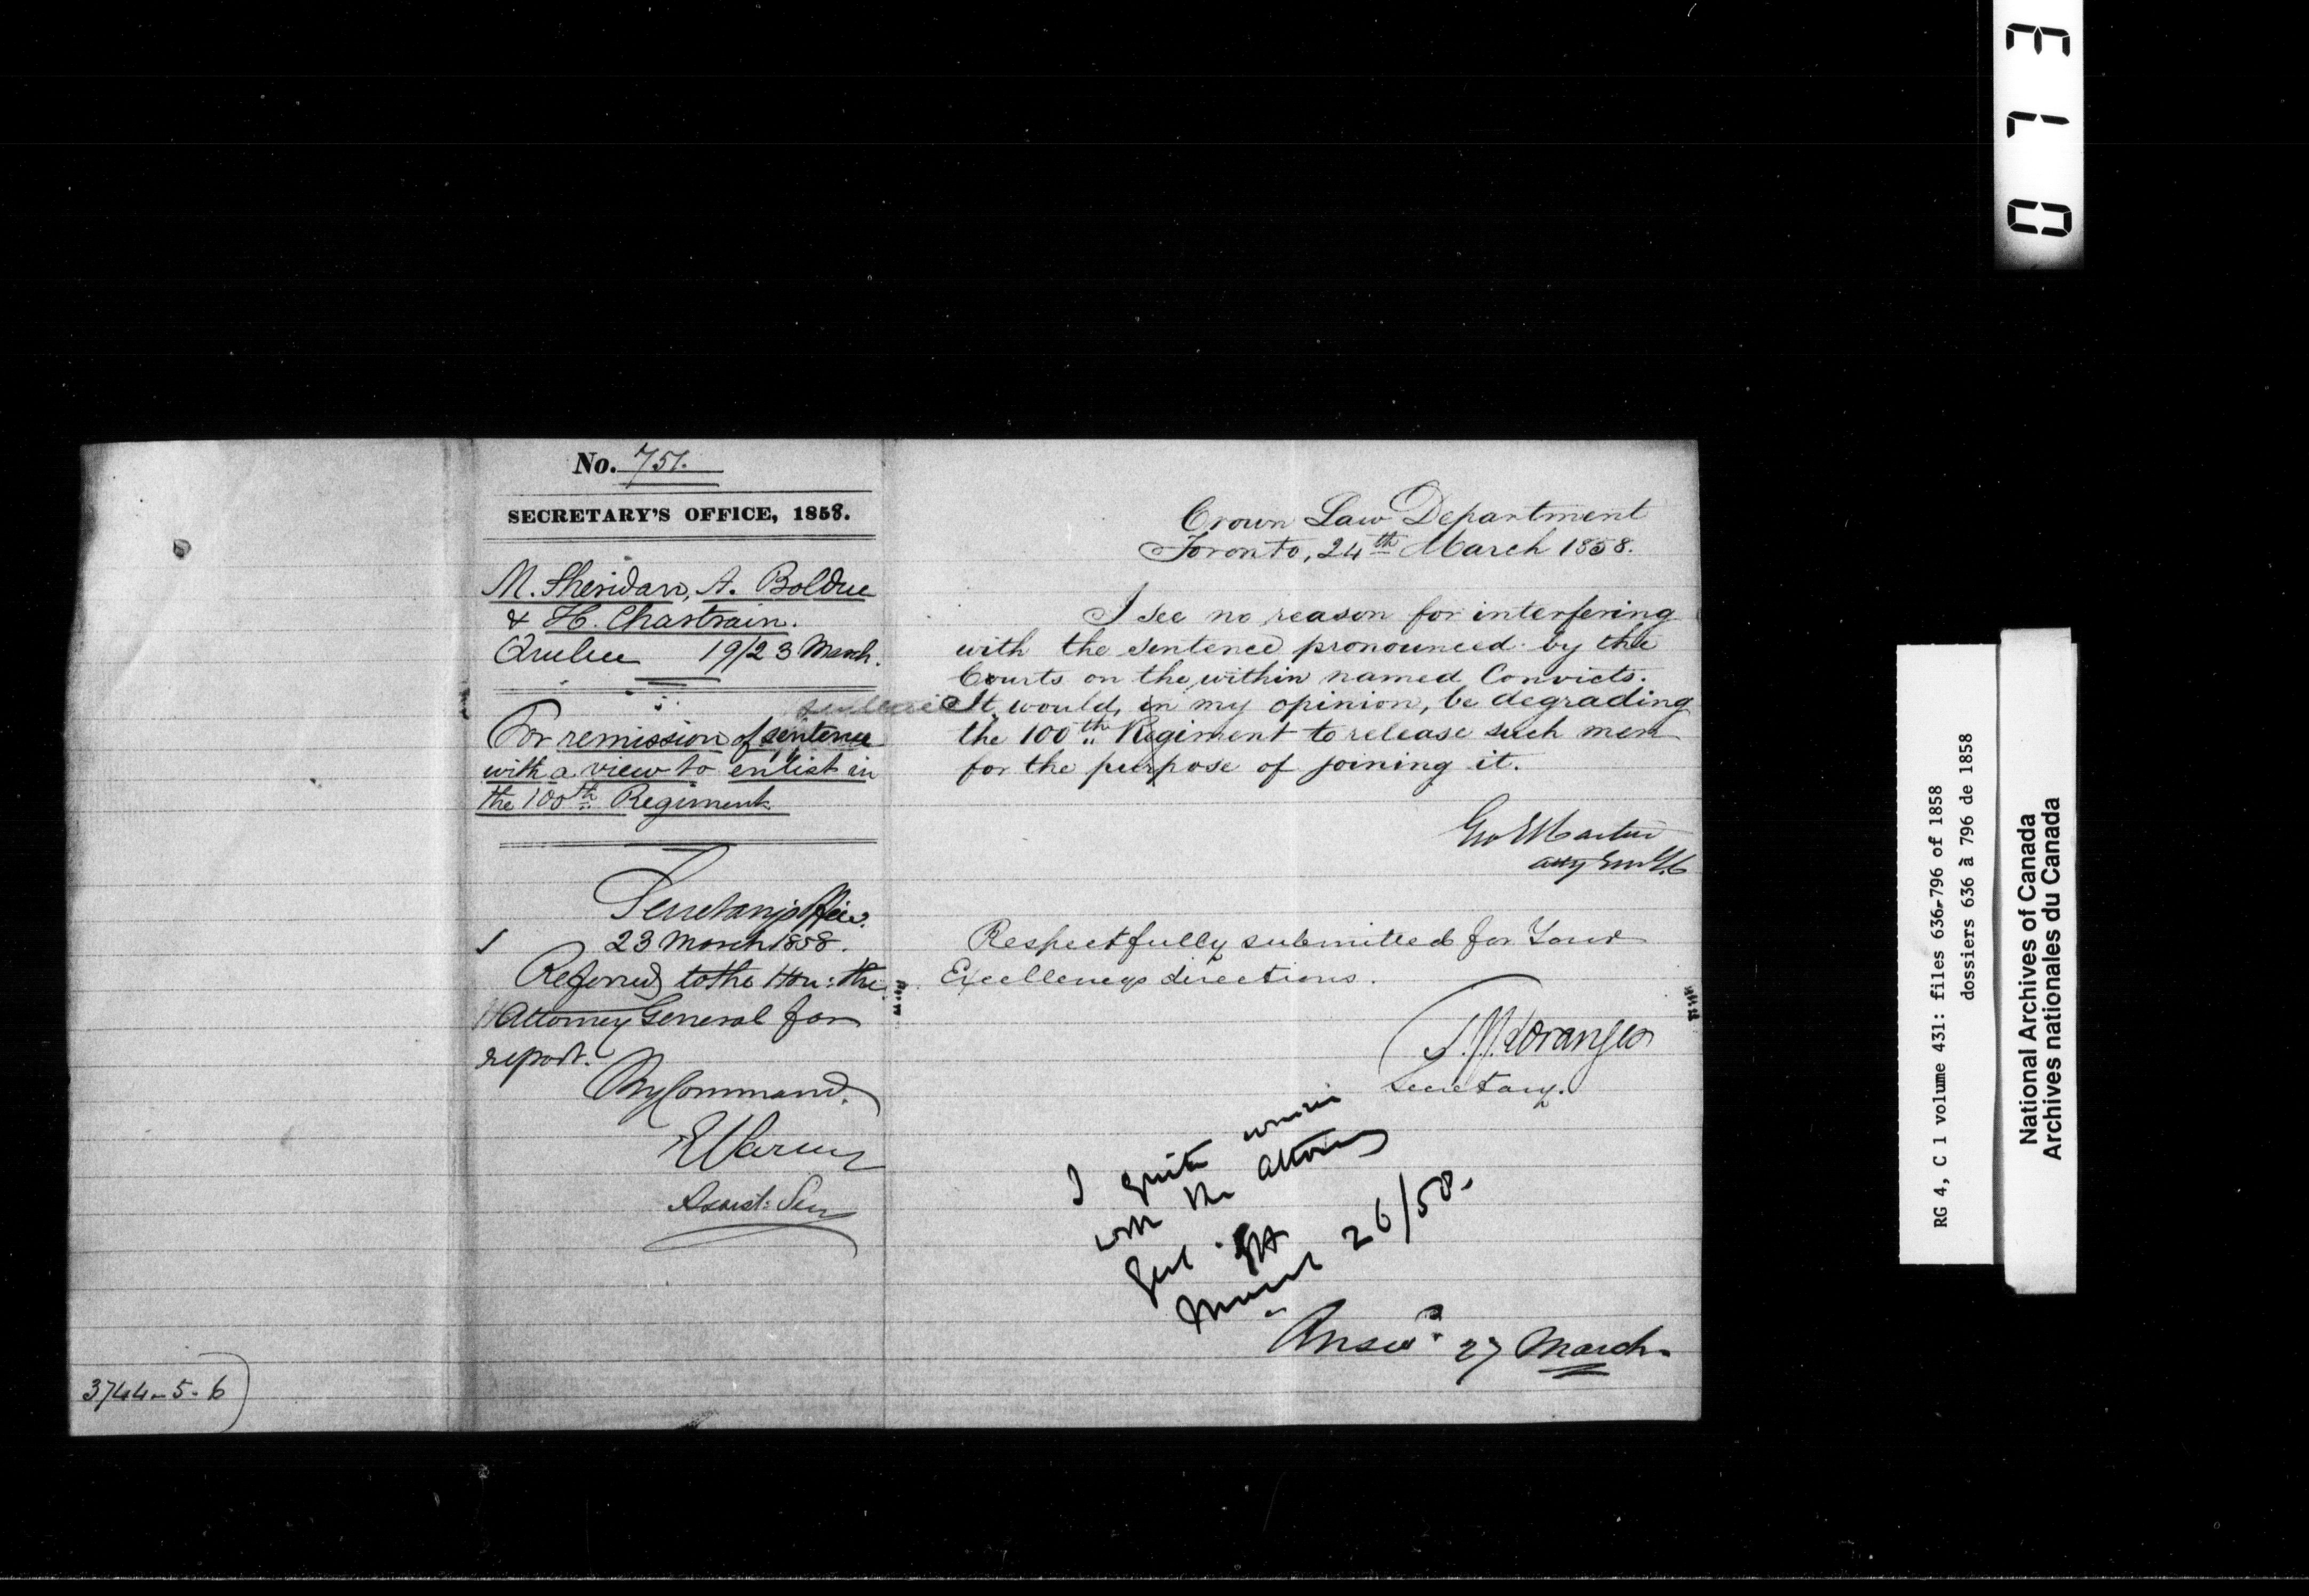 No. 751.
SECRETARY'S OFFICE, 1858.
M. Sheridan, A. Bolduc
& H. Chastrain.
Quebec 19/23 March.
For remission of sentence
with a view to enlist in
the 100th Regiment
Secretary's Office.
23 March 1858.
Referred to the Hon: the
Attorney General for
report.
By Command.
E Parent
Assist: Secy
3744-5-6
Crown Law Department
Toronto, 24th March 1858.
I see no reason for interfering
with the sentence pronounced by the
Courts on the within named Convicts.
It would, in my opinion, be degrading
the 100th Regiment to release such men
for the purpose of joining it.
Geo E Cartier
Atty Gen L.C
Respectfully submitted for Your
Excellencys directions.
T.J.J. Loranger
Secretary.
I quite concur
with the Attorney
Genl
March 26/58.
Answd 27 March.
0173
RG 4, C 1 volume 431: files 636-796 of 1858
dossiers 636 à 796 de 1858
National Archives of Canada
Archives nationales du Canada